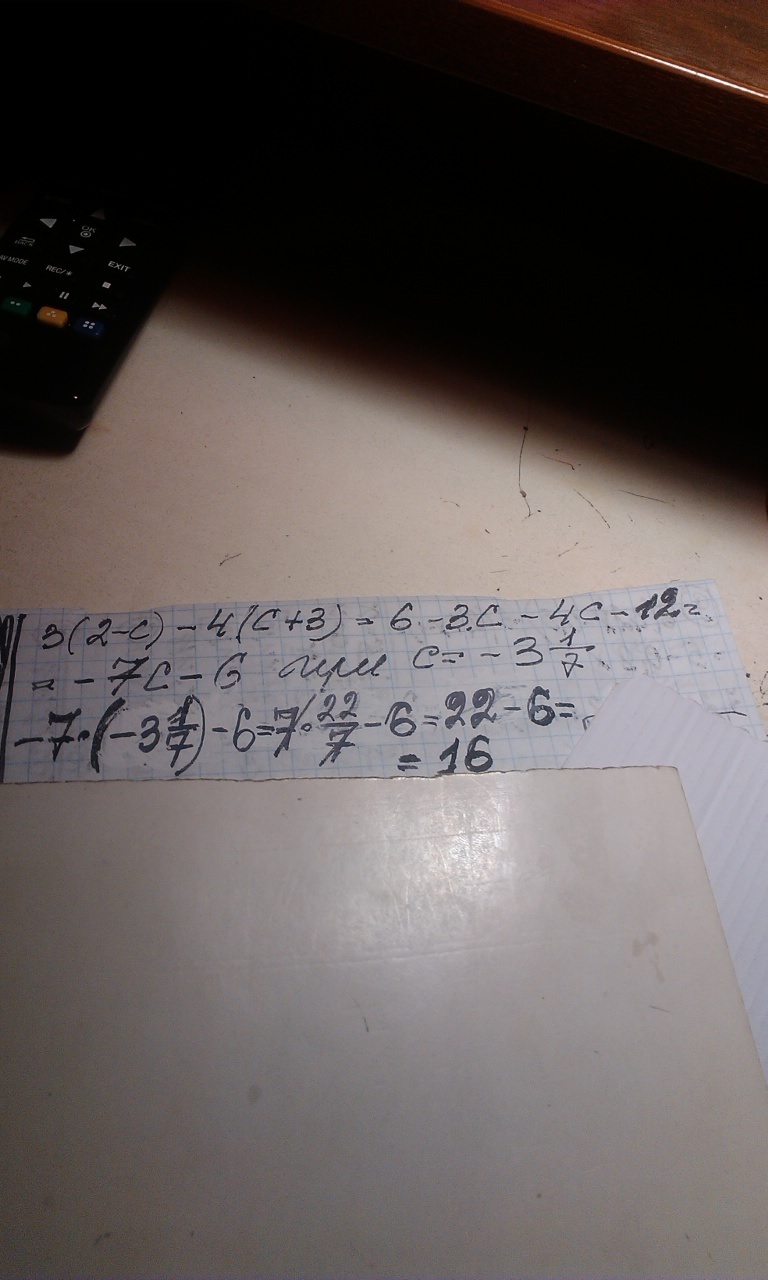 OK
BACK
AV MODE
REC/●
EXIT
3(2-c) - 4(c+3) = 6 - 3c - 4c - 12 =
= - 7c - 6 при c = - 3 1/7
-7·(-3 1/7) - 6 = 7·22/7 - 6 = 22 - 6 =
= 16